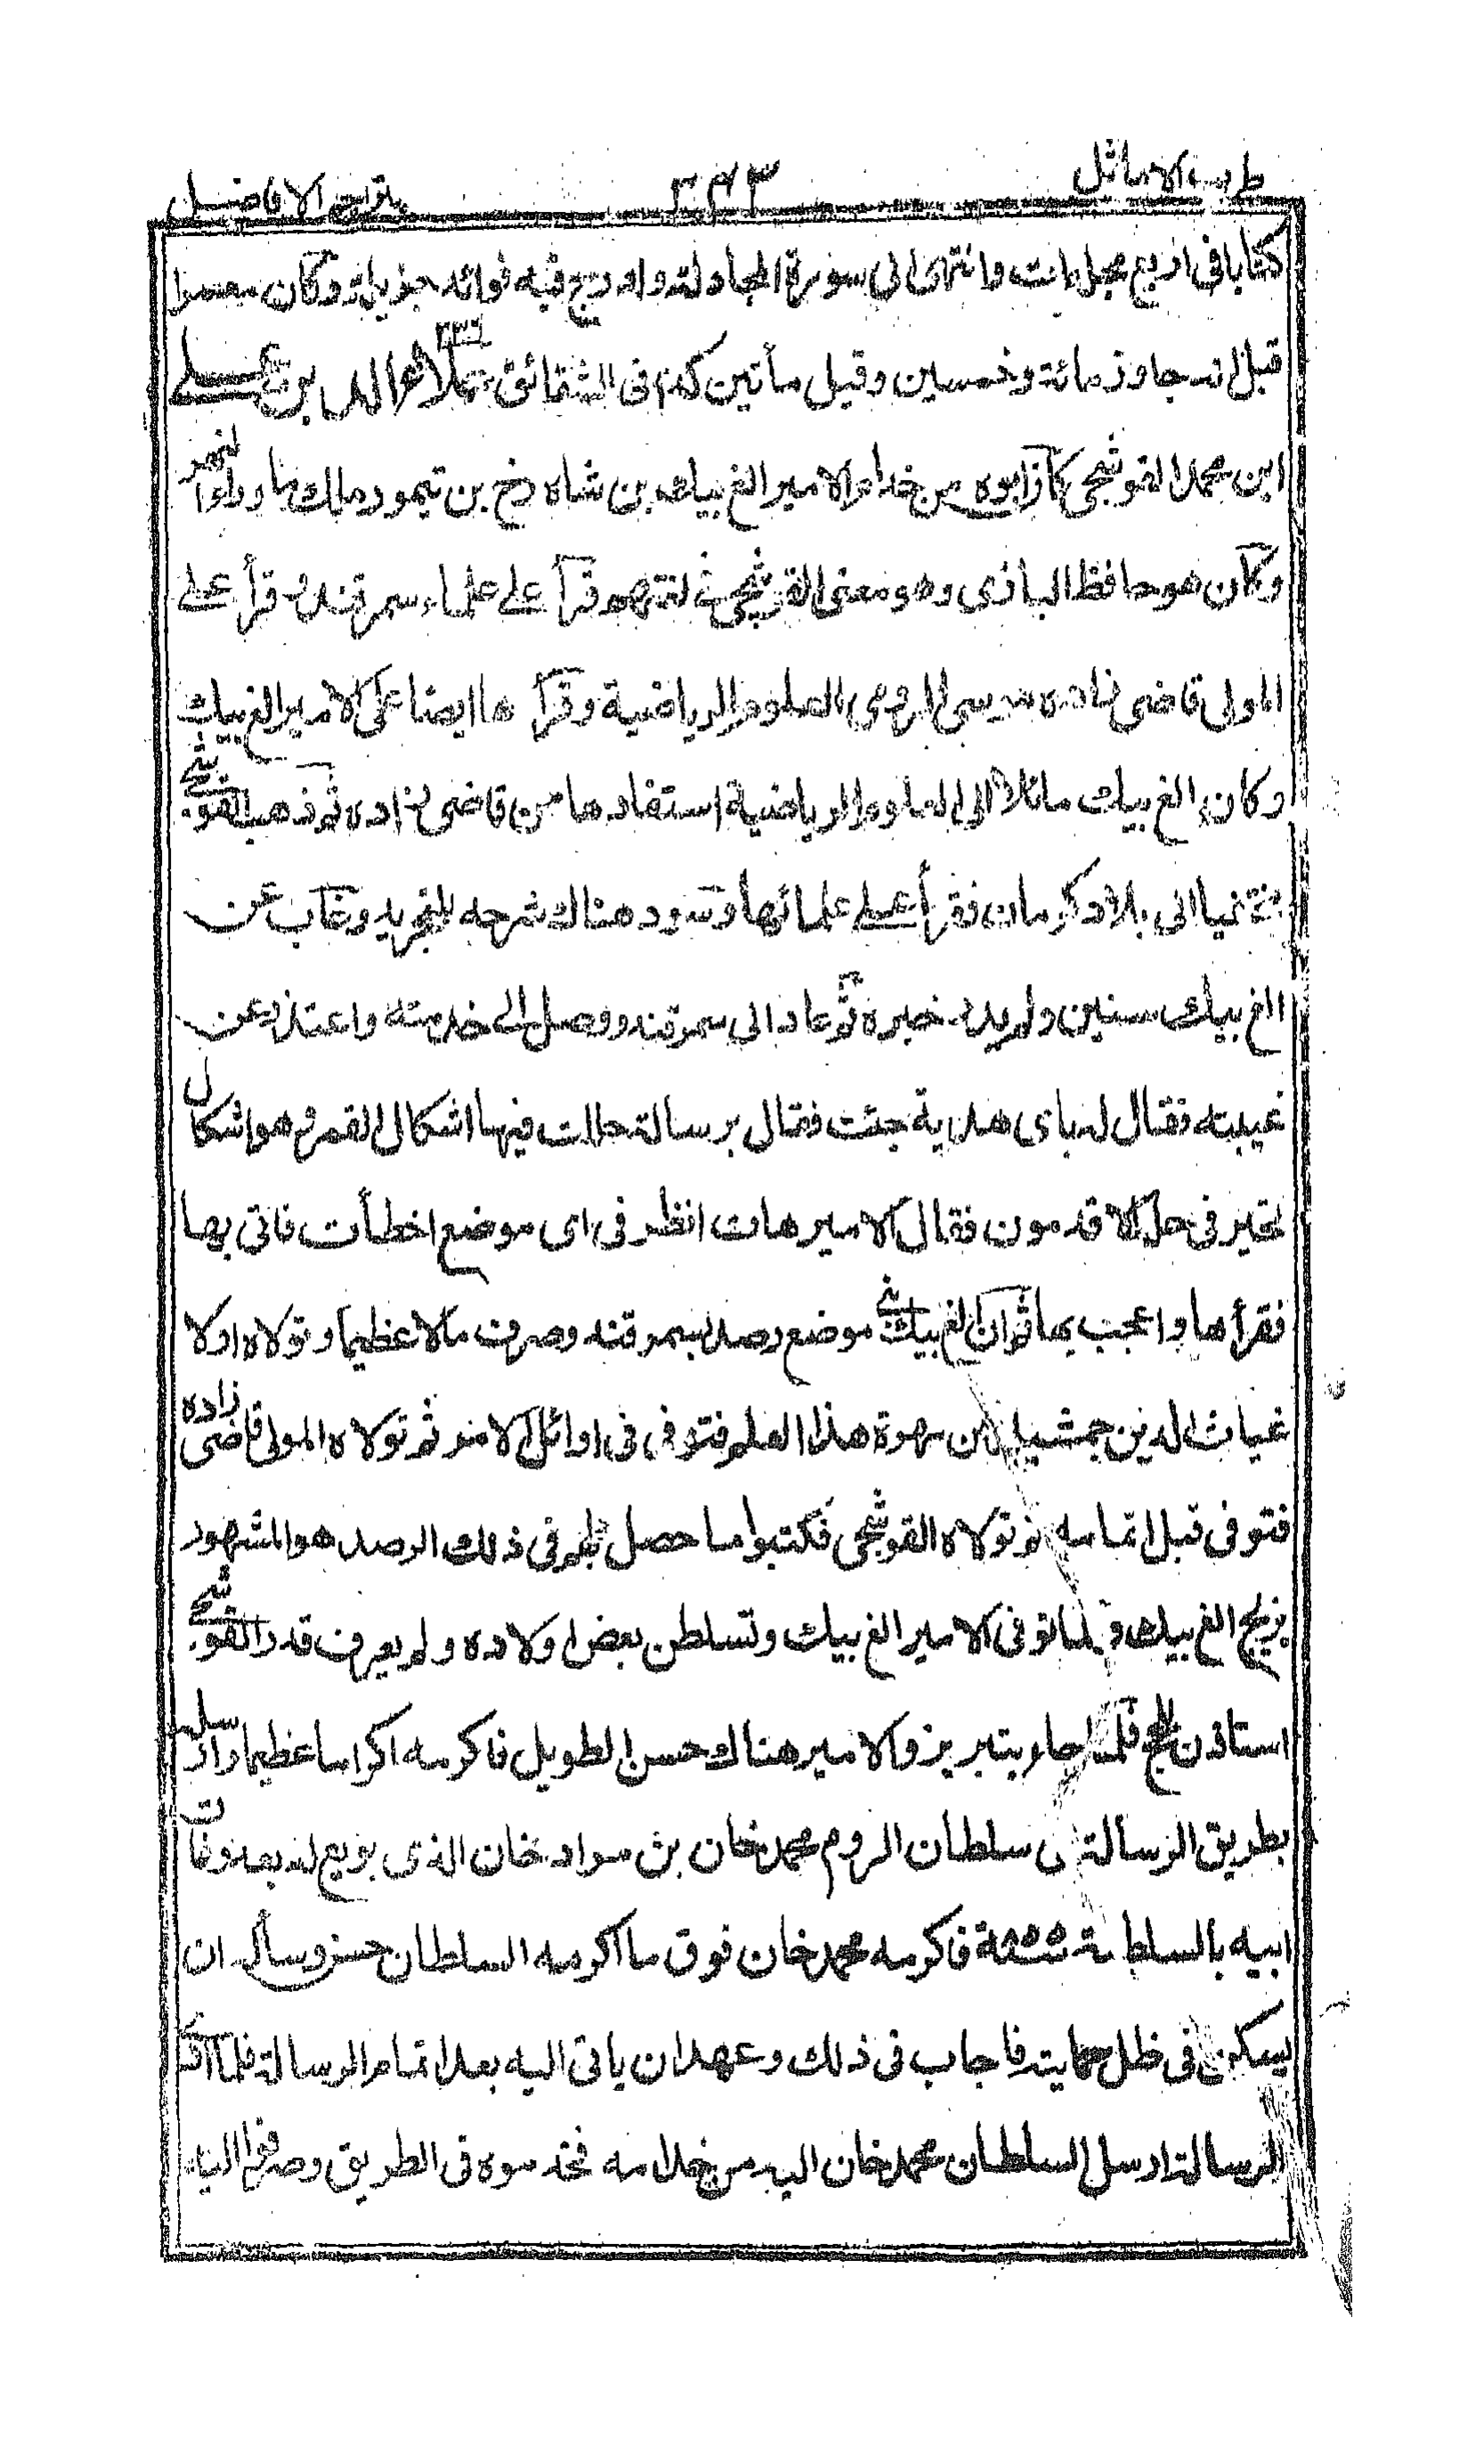 طرب الاماثل ٢٤٣ بتراجم الافاضل
كتابا فى اربع مجلدات وانتهى الى سورة المجادلة وادرج فيه فوائد جزيلة وكان معمرا
قيل انه جاوز مائة وخمسين وقيل مأتين كذا فى الشقائق علاء الدين على
ابن محمد القوشجى كان ابوه من خدام الامير الغ بيك بن شاه رخ بن تيمور ملك ما وراء النهر
وكان هو حافظ البازى وهو معنى القوشجى فى لغتهم قرأ على علماء سمرقند وقرأ على
المولى قاضى زاده موسى الرومى العلوم الرياضية وقرأ ها ايضا على الامير الغ بيك
وكان الغ بيك مائلا الى العلوم الرياضية استفادها من قاضى زاده ثم ذهب القوشجى
مختفيا الى بلاد كرمان فقرأ على علمائها وسود هناك شرحه للتجريد وغاب عن
الغ بيك سنين ولم يدر خبره ثم عاد الى سمرقند ووصل الى خدمته واعتذر عن
غيبته فقال له باى هدية جئت فقال برسالة حللت فيها اشكال القمر وهو اشكال
تحير فى حله الاقدمون فقال الامير هات انظر فى اى موضع اخطأت فاتى بها
فقرأها واعجب بها ثم ان الغ بيك بنى موضع رصد بسمرقند وصرف مالا عظيما وتولاه اولا
غياث الدين جمشيد من مهرة هذا العلم فتوفى فى اوائل الامر ثم تولاه المولى قاضى زاده
فتوفى قبل اتمامه ثم تولاه القوشجى فكتبوا ما حصل لهم فى ذلك الرصد هو المشهور
بزيج الغ بيك ولما توفى الامير الغ بيك وتسلطن بعض اولاده ولم يعرف قدر القوشجى
استاذن للحج فلما جاء بتبريز والامير هناك حسن الطويل فاكرمه اكراما عظيما وارسله
بطريق الرسالة الى سلطان الروم محمد خان بن مراد خان الذى بويع له بعد وفات
ابيه بالسلطنة ٨٥٥ سنة فاكرمه محمد خان فوق ما اكرمه السلطان حسن وسأله ان
يسكن فى ظل حمايته فاجاب فى ذلك وعهد ان ياتى اليه بعد اتمام الرسالة فلما ادى
الرسالة ارسل السلطان محمد خان اليه من خدامه فخدموه فى الطريق وصرفوا اليه